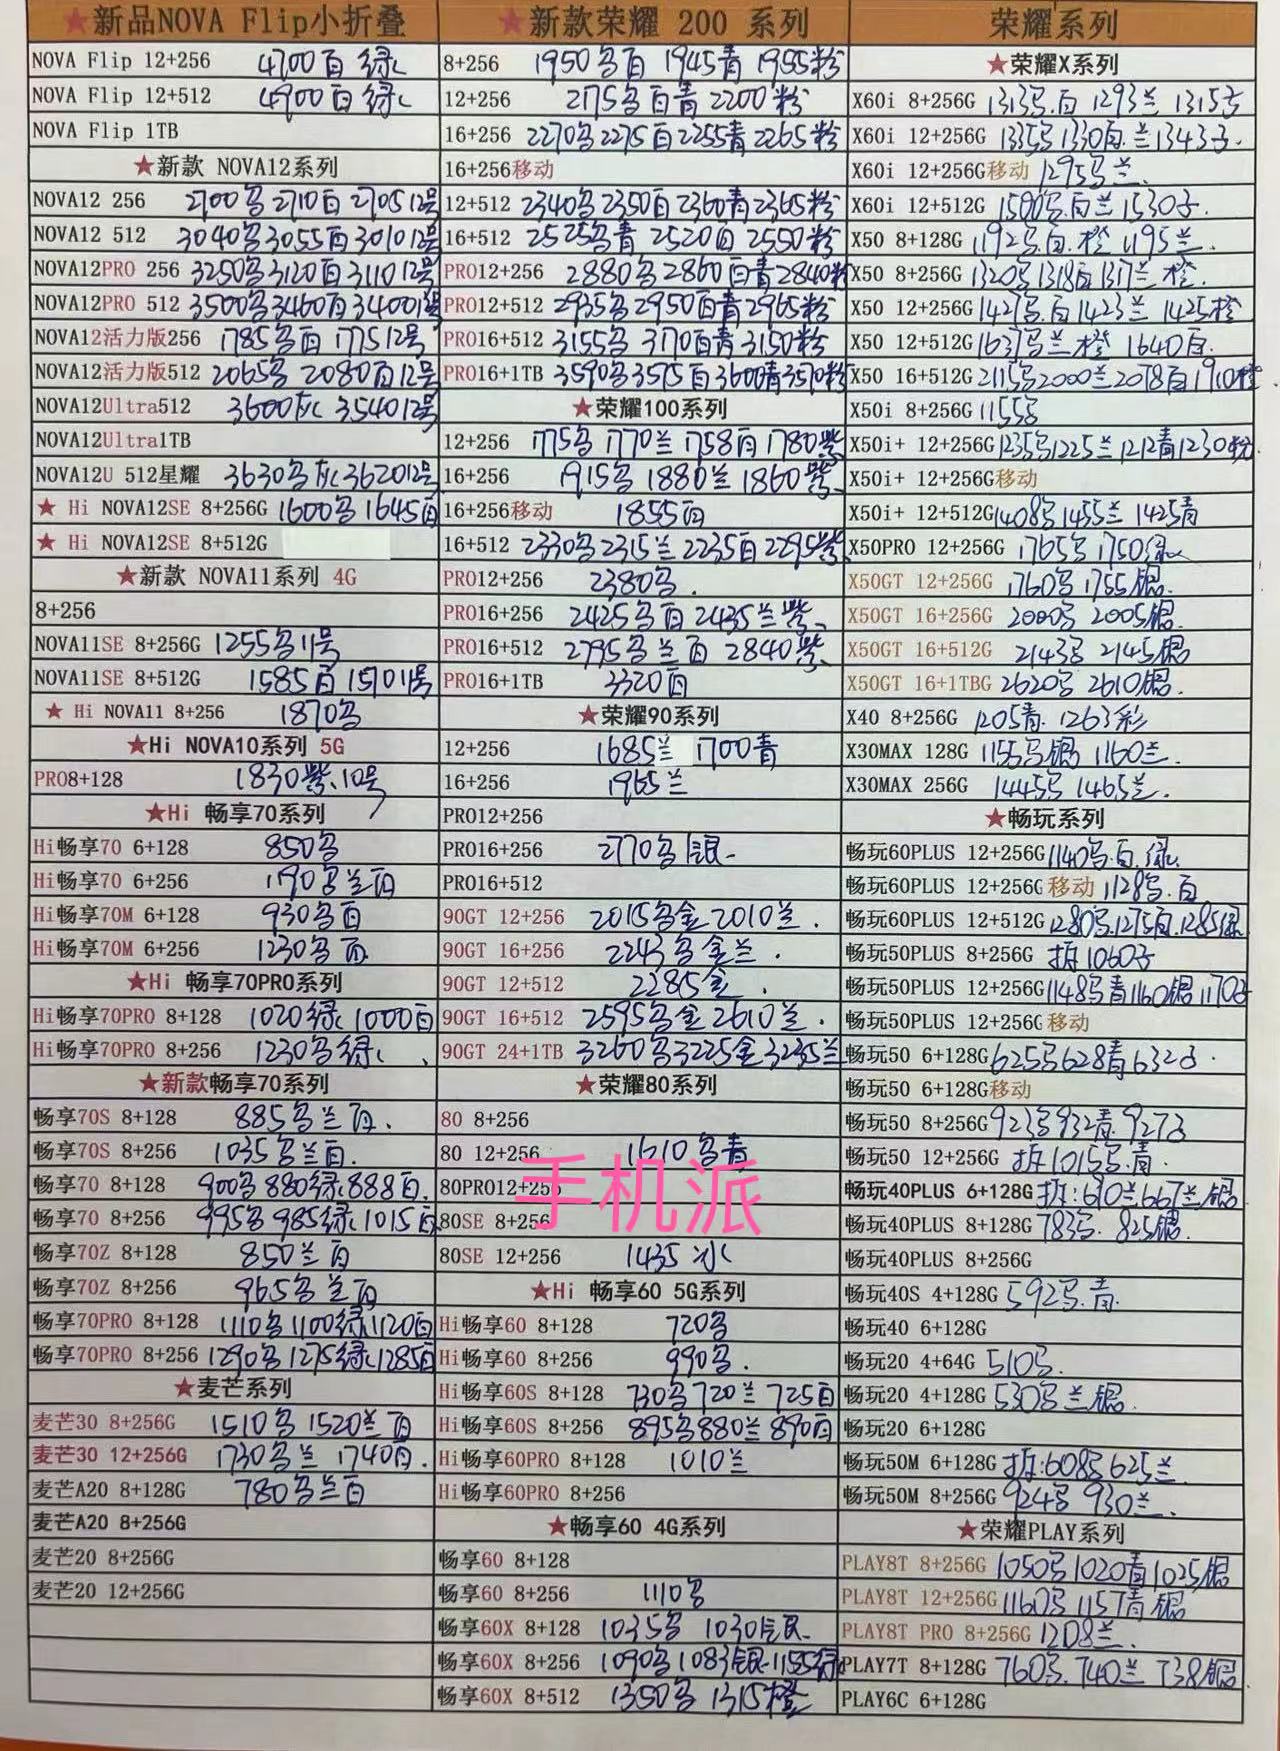 ★新品NOVA Flip小折叠
NOVA Flip 12+256 4700白绿
NOVA Flip 12+512 4900白绿
NOVA Flip 1TB
★新款 NOVA12系列
NOVA12 256 2700黑2710白270512号
NOVA12 512 3040黑3055白301012号
NOVA12PRO 256 3250黑3120白311012号
NOVA12PRO 512 3500黑3460白340012号
NOVA12活力版256 1785黑白 177512号
NOVA12活力版512 2065黑 2080白12号
NOVA12Ultra512 3600灰 354012号
NOVA12Ultra1TB
NOVA12U 512星耀 3630黑灰362012号
★ Hi NOVA12SE 8+256G 1600黑1645白
★ Hi NOVA12SE 8+512G
★新款 NOVA11系列 4G
8+256
NOVA11SE 8+256G 1255黑11号
NOVA11SE 8+512G 1585白157011号
★ Hi NOVA11 8+256 1870黑
★Hi NOVA10系列 5G
PRO8+128 1830紫.10号
★Hi 畅享70系列
Hi畅享70 6+128 850黑
Hi畅享70 6+256 1190黑兰白
Hi畅享70M 6+128 930黑白
Hi畅享70M 6+256 1230黑白
★Hi 畅享70PRO系列
Hi畅享70PRO 8+128 1020绿1000白
Hi畅享70PRO 8+256 1230黑绿
★新款畅享70系列
畅享70S 8+128 885黑兰白.
畅享70S 8+256 1035黑兰白.
畅享70 8+128 900黑880绿888白.
畅享70 8+256 995黑985绿1015白
畅享70Z 8+128 850兰白
畅享70Z 8+256 965黑兰白
畅享70PRO 8+128 1110黑1100绿1120白
畅享70PRO 8+256 1290黑1275绿1285白
★麦芒系列
麦芒30 8+256G 1510黑1520兰白
麦芒30 12+256G 1730黑兰 1740白.
麦芒A20 8+128G 780黑兰白
麦芒A20 8+256G
麦芒20 8+256G
麦芒20 12+256G
★新款荣耀 200 系列
8+256 1950黑白 1945青 1955粉
12+256 2175黑白青2200粉
16+256 2270黑2275白2255青2265粉
16+256移动
12+512 2340黑2350白2360青2365粉
16+512 2525黑青 2520白2550粉
PRO12+256 2880黑2860白青2840粉
PRO12+512 2935黑2950白青2965粉
PRO16+512 3155黑 3170白青3150粉
PRO16+1TB 3590黑3575白3600青3570粉
★荣耀100系列
12+256 1775黑1770兰1758白1780紫
16+256 1915黑1880兰1860紫
16+256移动 1855白
16+512 2330黑2315兰2235白2295紫
PRO12+256 2380黑.
PRO16+256 2425黑白2435兰紫
PRO16+512 2795黑兰白2840紫
PRO16+1TB 3320白
★荣耀90系列
12+256 1685兰 1700青
16+256 1965兰
PRO12+256
PRO16+256 2770黑银
PRO16+512
90GT 12+256 2015黑金2010兰.
90GT 16+256 2243黑金兰.
90GT 12+512 2285金.
90GT 16+512 2595黑金2610兰.
90GT 24+1TB 3260黑3225金3235兰
★荣耀80系列
80 8+256
80 12+256 1610黑青
80PRO12+256
80SE 8+256
手机派
80SE 12+256 1435冰
★Hi 畅享60 5G系列
Hi畅享60 8+128 720黑
Hi畅享60 8+256 990黑.
Hi畅享60S 8+128 730黑720兰725白
Hi畅享60S 8+256 895黑880兰890白
Hi畅享60PRO 8+128 1010兰
Hi畅享60PRO 8+256
★畅享60 4G系列
畅享60 8+128
畅享60 8+256 1110黑
畅享60X 8+128 1035黑 1030银
畅享60X 8+256 1090黑1083银1155绿
畅享60X 8+512 1350黑1315橙
荣耀系列
★荣耀X系列
X60i 8+256G 1313黑.白 1293兰 1315紫
X60i 12+256G 1335黑1330白.兰1343紫.
X60i 12+256G移动 1295黑兰.
X60i 12+512G 1500黑.白兰1530紫.
X50 8+128G 1192黑.白.橙 1195兰.
X50 8+256G 1320黑1318白1317兰橙.
X50 12+256G 1427黑.白1423兰1425橙
X50 12+512G 1637黑兰橙 1640白.
X50 16+512G 2115黑2000兰2078白1910橙
X50i 8+256G 1155黑
X50i+ 12+256G 1235黑1225兰1212青1230粉
X50i+ 12+256G移动
X50i+ 12+512G 1408黑1455兰1425青
X50PRO 12+256G 1765黑1750绿
X50GT 12+256G 1760黑1755银.
X50GT 16+256G 2000黑 2005银.
X50GT 16+512G 2143黑 2145银
X50GT 16+1TBG 2620黑2610银.
X40 8+256G 1205青.1263彩
X30MAX 128G 1155黑银 1160兰.
X30MAX 256G 1445黑1465兰.
★畅玩系列
畅玩60PLUS 12+256G 1140黑.白.绿.
畅玩60PLUS 12+256G移动 1128黑.白
畅玩60PLUS 12+512G 1280黑.1275白.1285绿
畅玩50PLUS 8+256G 拆1060紫
畅玩50PLUS 12+256G 1148黑青1160银1170紫
畅玩50PLUS 12+256G移动
畅玩50 6+128G 625黑628青632紫.
畅玩50 6+128G移动
畅玩50 8+256G 923黑932青.927紫
畅玩50 12+256G 拆1015黑.青.
畅玩40PLUS 6+128G 拆:690兰667兰银
畅玩40PLUS 8+128G 783黑.825银.
畅玩40PLUS 8+256G
畅玩40S 4+128G 592黑.青.
畅玩40 6+128G
畅玩20 4+64G 510黑.
畅玩20 4+128G 530黑兰银.
畅玩20 6+128G
畅玩50M 6+128G 拆:608黑625兰
畅玩50M 8+256G 924黑930兰.
★荣耀PLAY系列
PLAY8T 8+256G 1050黑1020青1025银
PLAY8T 12+256G 1160黑1157青银
PLAY8T PRO 8+256G 1208兰.
PLAY7T 8+128G 760黑.740兰 738银
PLAY6C 6+128G